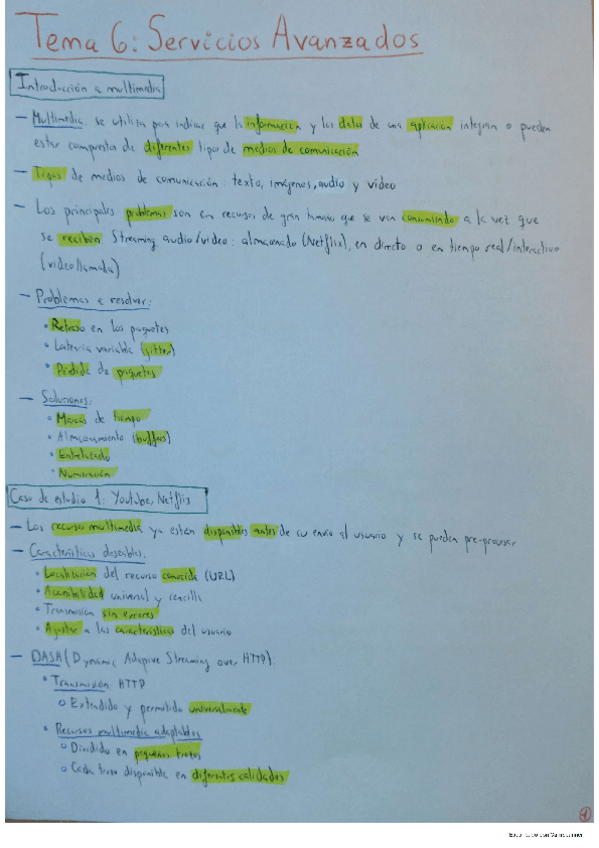 Tema 6: Servicios Avanzados
Introducción a multimedia
— Multimedia: se utiliza para indicar que la información y los datos de una aplicación integran o pueden
estar compuesta de diferentes tipos de medios de comunicación
— Tipos de medios de comunicación: texto, imágenes, audio y vídeo
— Los principales problemas son en recursos de gran tamaño que se van consumiendo a la vez que
se reciben Streaming audio/video: almacenado (Netflix), en directo o en tiempo real/interactivo
(videollamada)
— Problemas a resolver:
• Retraso en los paquetes
• Latencia variable (jitter)
• Pérdida de paquetes
— Soluciones:
• Marcas de tiempo
• Almacenamiento (buffers)
• Entrelazado
• Numeración
Caso de estudio 1: Youtube, Netflix
— Los recursos multimedia ya están disponibles antes de su envío al usuario y se pueden pre-procesar
— Características deseables:
• Localización del recurso conocida (URL)
• Accesibilidad universal y sencilla
• Transmisión sin errores
• Ajustar a las características del usuario
— DASH (Dynamic Adaptive Streaming over HTTP):
• Transmisión HTTP
o Extendido y permitido universalmente
• Recursos multimedia adaptables
o Dividido en pequeños trozos
o Cada trozo disponible en diferentes calidades
1